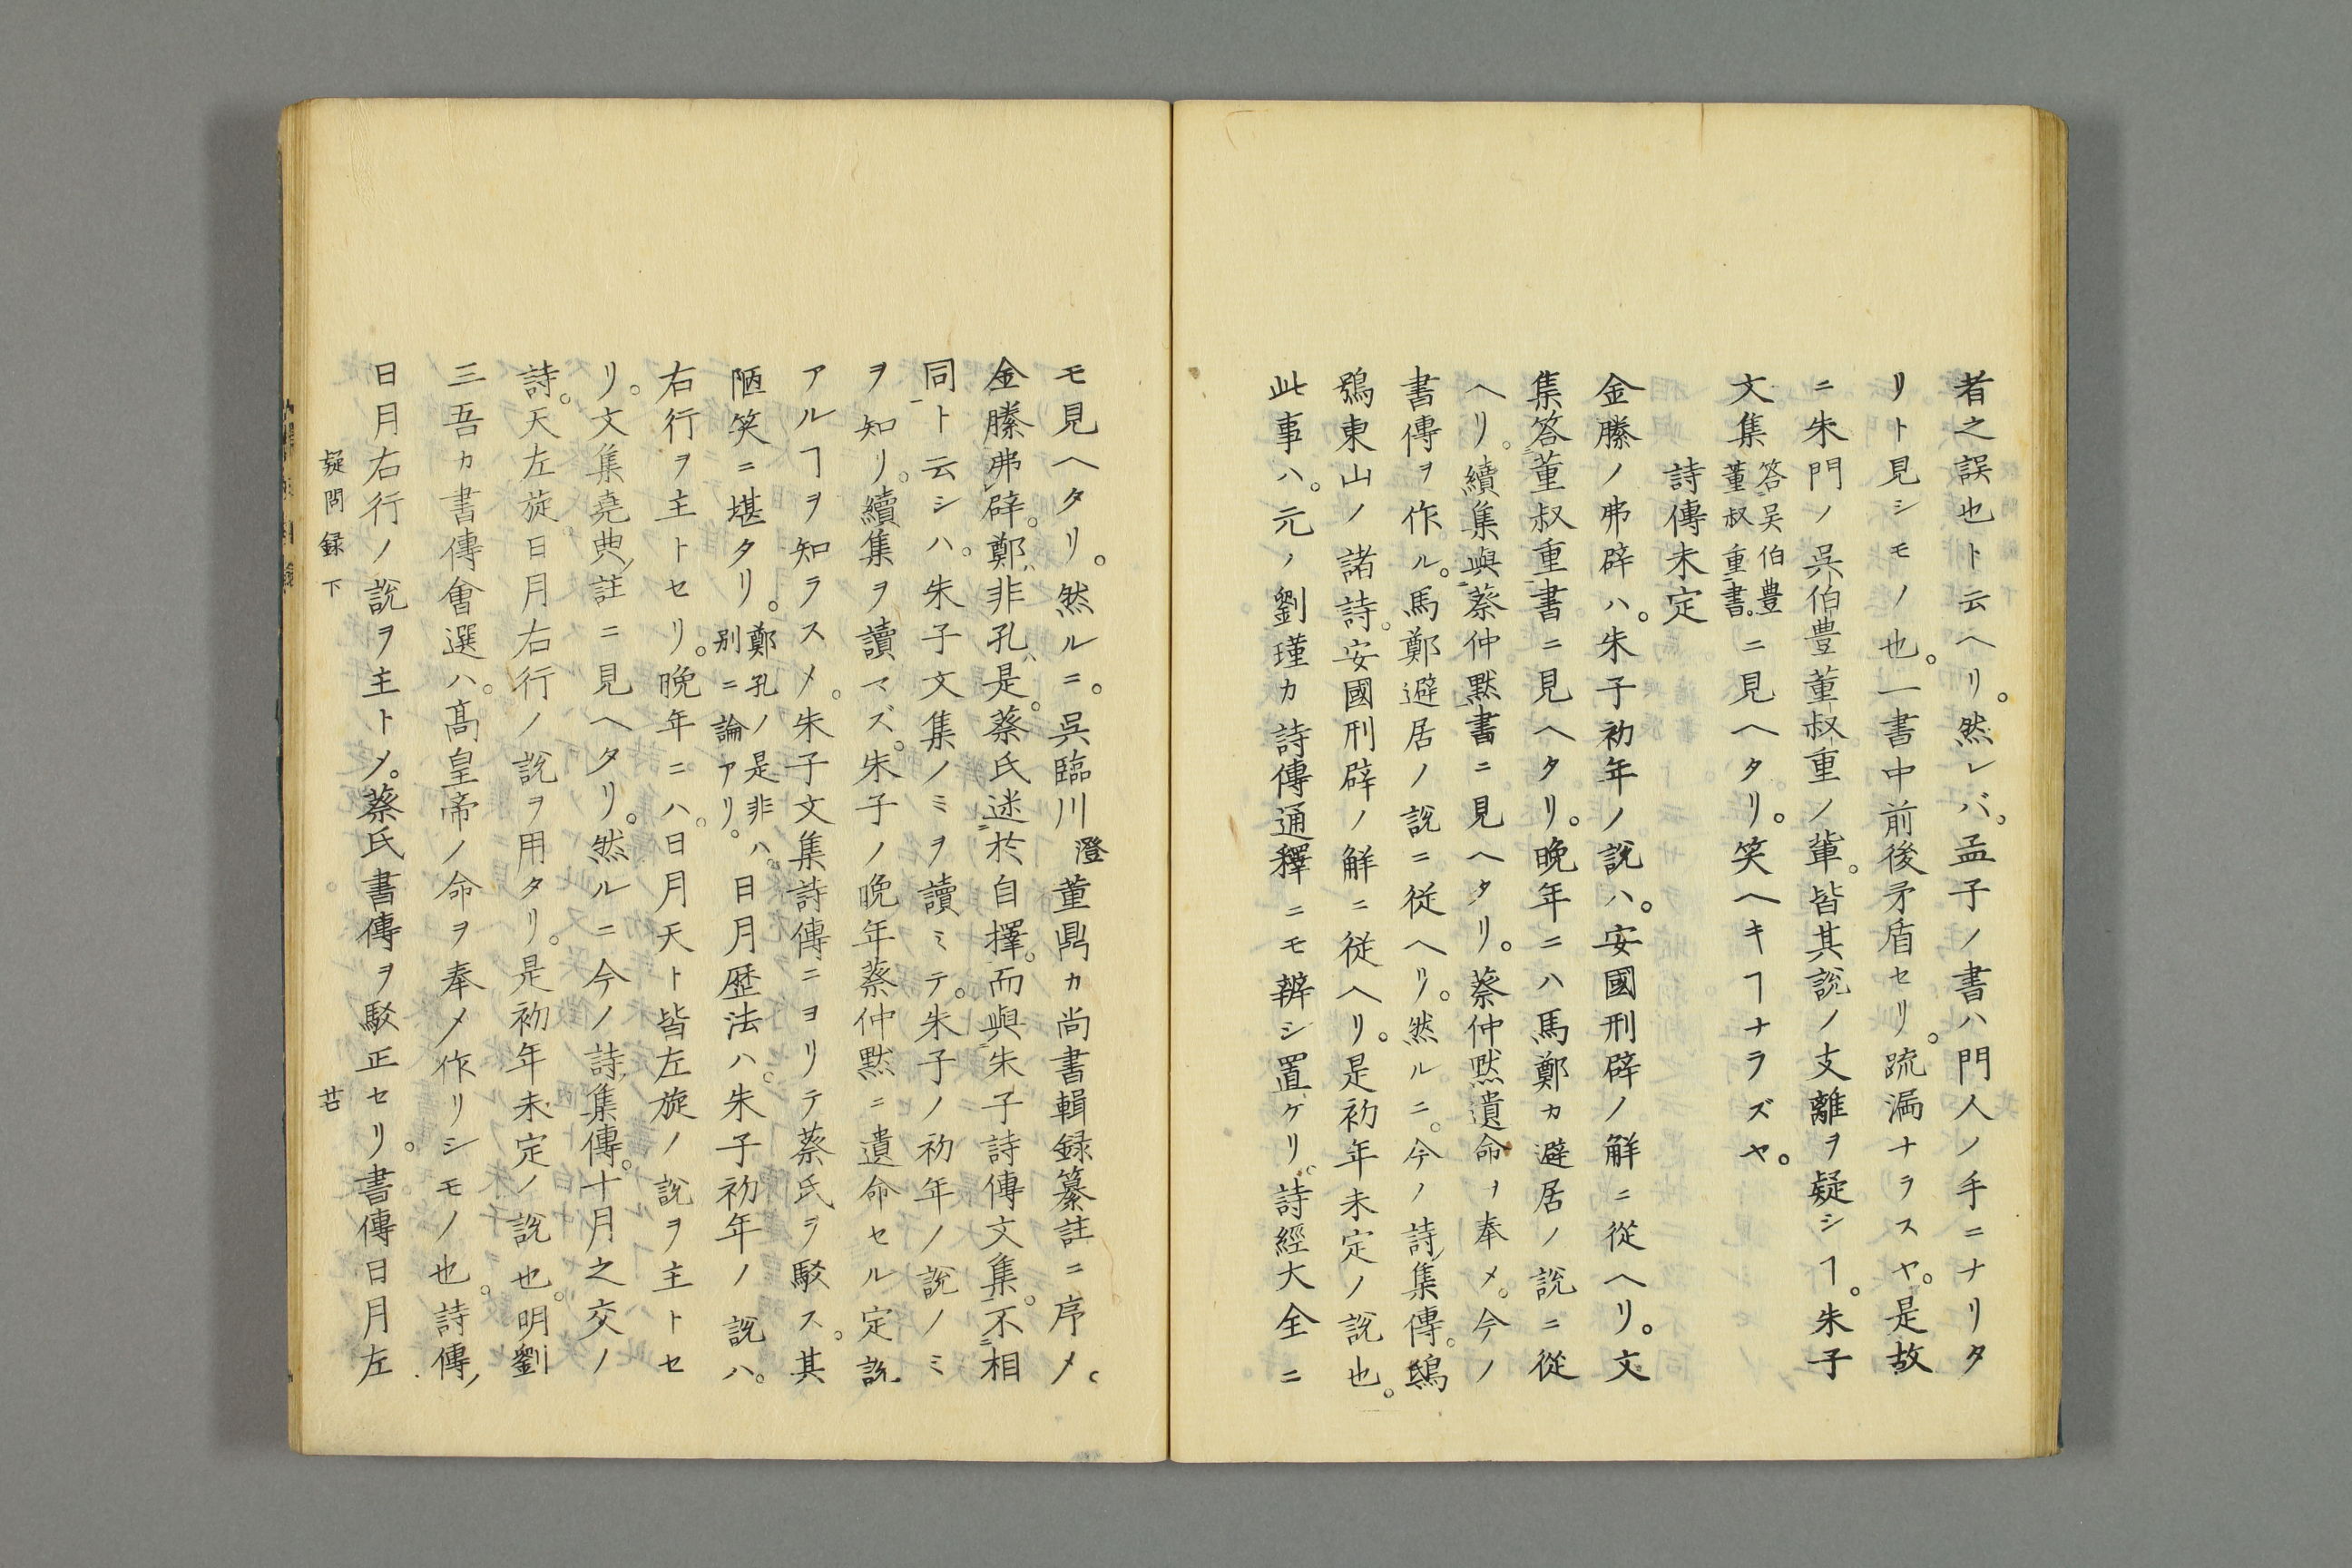 者之誤也ト云ヘリ。然レバ。孟子ノ書ハ門人ノ手ニナリタ
リト見シモノ也。一書中前後矛盾セリ。疏漏ナラスヤ。是故
ニ朱門ノ呉伯豊董叔重ノ輩。皆其説ノ支離ヲ疑シヿ。朱子
文集答吴伯豊董叔重書。ニ見ヘタリ。笑ヘキヿナラズヤ。
詩傳未定
金縢ノ弗辟ハ。朱子初年ノ説ハ。安國刑辟ノ解ニ從ヘリ。文
集答董叔重書ニ見ヘタリ。晩年ニハ馬鄭カ避居ノ説ニ從
ヘリ。續集與蔡仲黙書ニ見ヘタリ。蔡仲黙遺命ヲ奉メ。今ノ
書傳ヲ作ル。馬鄭避居ノ説ニ従ヘリ。然ルニ。今ノ詩集傳。鴟
鴞東山ノ諸詩。安國刑辟ノ解ニ従ヘリ。是初年未定ノ説也。
此事ハ。元ノ劉瑾カ詩傳通釋ニモ辨シ置ケリ。詩經大全ニ
モ見ヘタリ。然ルニ。呉臨川澄董鼎カ尚書輯録纂註ニ序メ。
金縢弗辟。鄭非孔是。蔡氏迷於自擇。而與朱子詩傳文集。不相
同ト云シハ。朱子文集ノミヲ讀ミテ。朱子ノ初年ノ説ノミ
ヲ知リ。續集ヲ讀マズ。朱子ノ晩年蔡仲黙ニ遺命セル定説
アルヿヲ知ラスメ。朱子文集詩傳ニヨリテ蔡氏ヲ駁ス。其
陋笑ニ堪タリ。鄭孔ノ是非ハ。別ニ論アリ。日月歴法ハ。朱子初年ノ説ハ。
右行ヲ主トセリ。晩年ニハ。日月天ト皆左旋ノ説ヲ主トセ
リ。文集堯典ノ註ニ見ヘタリ。然ルニ今ノ詩集傳。十月之交ノ
詩。天左旋。日月右行ノ説ヲ用タリ。是初年未定ノ説也。明劉
三吾カ書傳會選ハ。髙皇帝ノ命ヲ奉メ作リシモノ也。詩傳ノ
日月右行ノ説ヲ主トメ。蔡氏書傳ヲ駁正セリ。書傳日月左
疑問録下